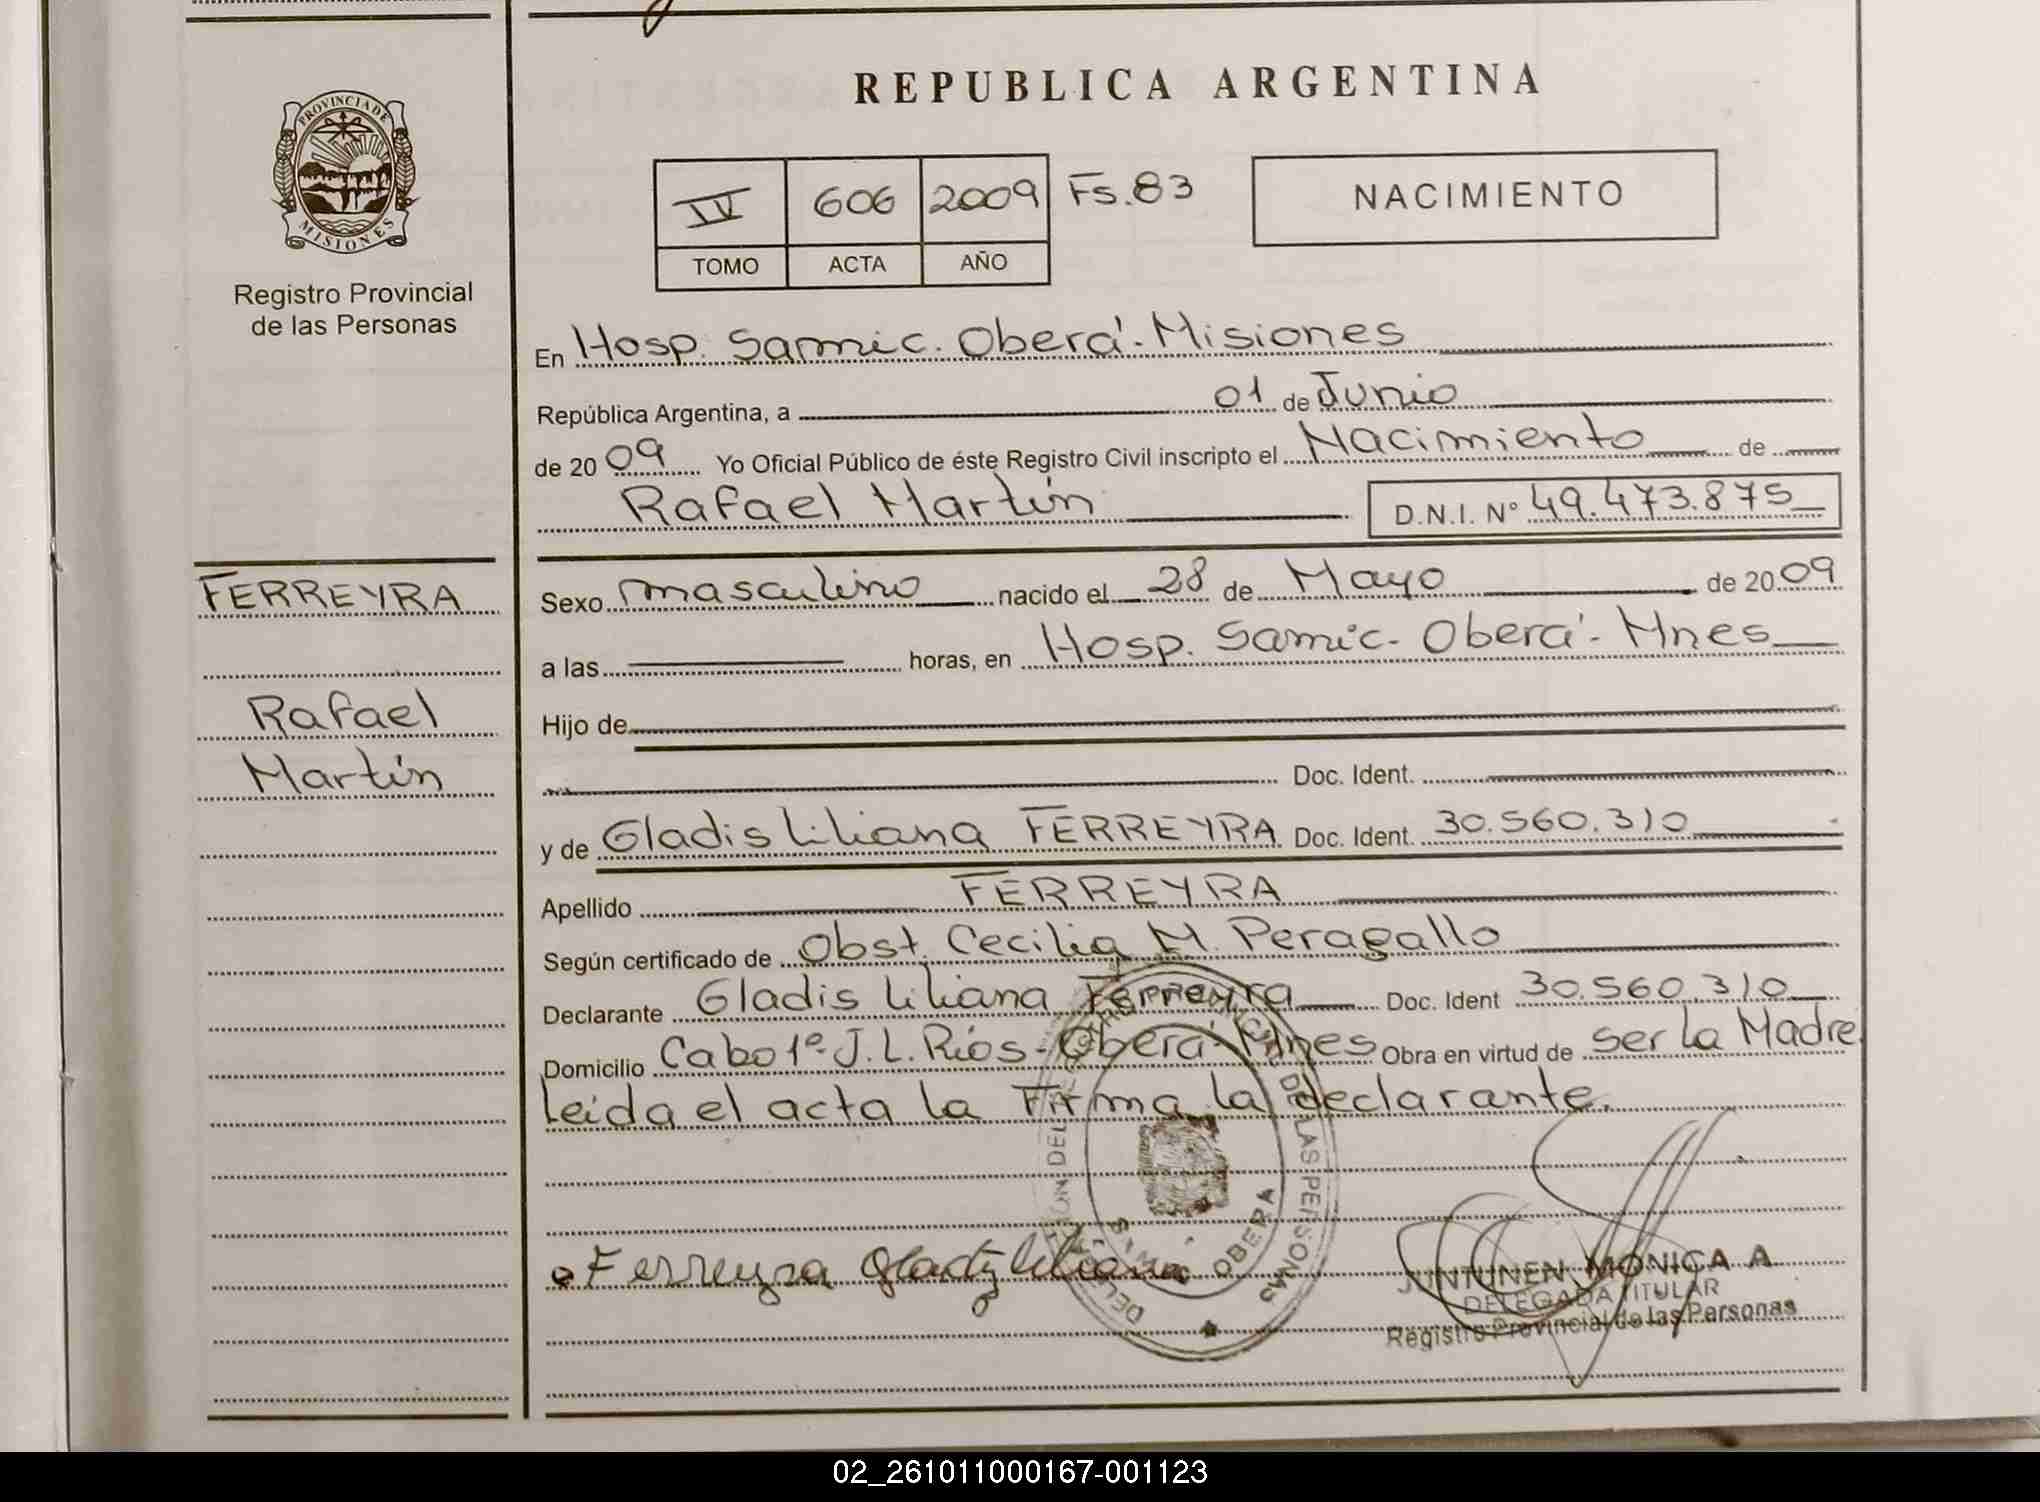 PROVINCIA DE
MISIONES
Registro Provincial
de las Personas
FERREYRA
Rafael
Martín
REPUBLICA ARGENTINA
IV 606 2009 Fs. 83
TOMO ACTA AÑO
NACIMIENTO
En Hosp. Samic. Oberá - Misiones
República Argentina, a 01 de Junio
de 2009 Yo Oficial Público de éste Registro Civil inscripto el Nacimiento de
Rafael Martín D.N.I. Nº 49.473.875
Sexo masculino nacido el 28 de Mayo de 2009
a las horas, en Hosp. Samic - Oberá - Mnes
Hijo de
Doc. Ident.
y de Gladis Liliana FERREYRA Doc. Ident. 30.560.310
Apellido FERREYRA
Según certificado de Obst. Cecilia M. Peragallo
Declarante Gladis Liliana Ferreyra Doc. Ident 30.560.310
Domicilio Cabo 1º J. L. Ríos - Oberá - Mnes Obra en virtud de ser la Madre
Leida el acta la Firma la declarante.
Ferreyra Gladys Liliana
SAMIC OBERA
JUNTUNEN MONICA A
DELEGADA TITULAR
Registro Provincial de las Personas
02_261011000167-001123